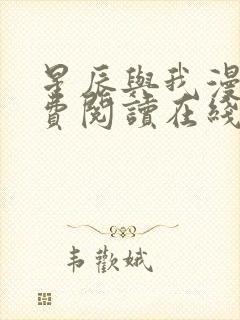 星辰與我漫
費閱讀在綫
韦歡娥